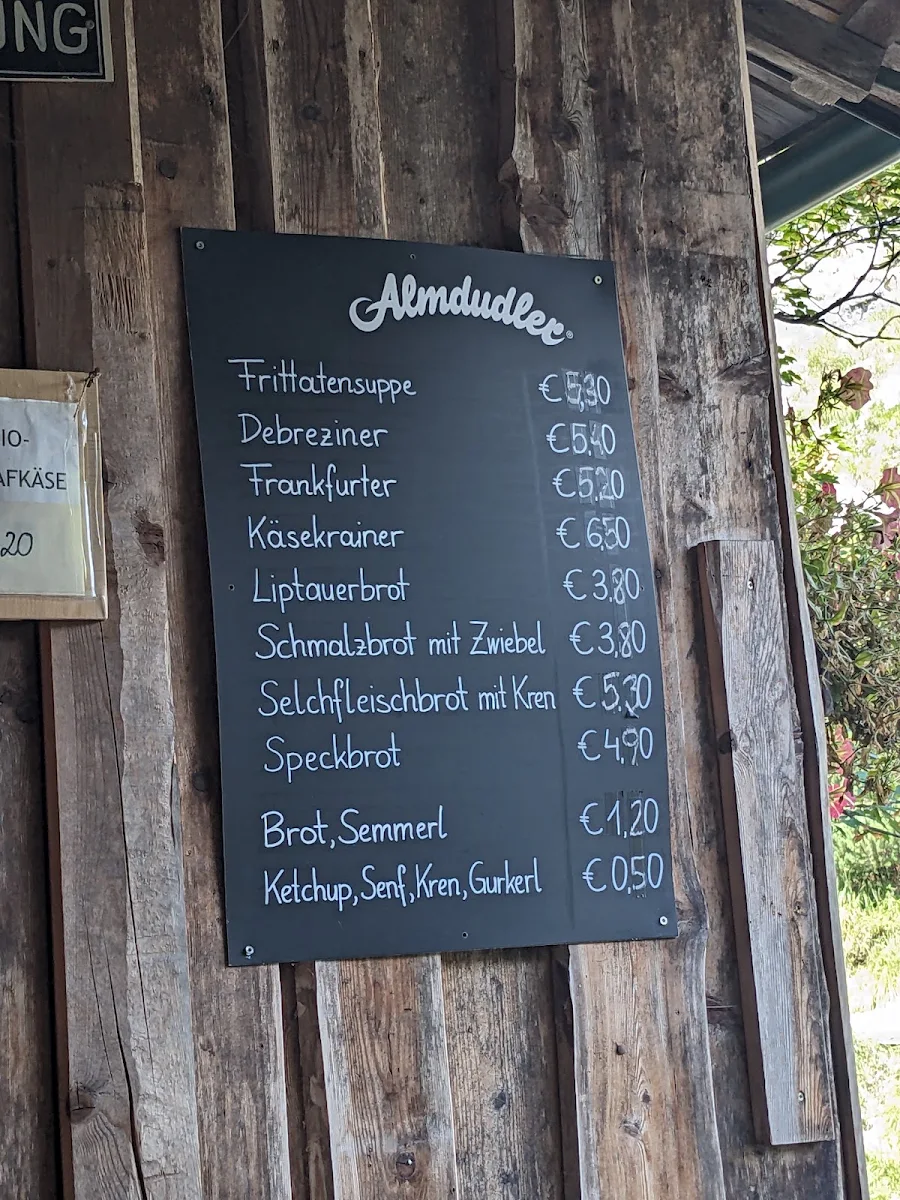 UNG
IO-
AFKÄSE
20
Almdudler®
Frittatensuppe € 5,30
Debreziner € 5,40
Frankfurter € 5,20
Käsekrainer € 6,50
Liptauerbrot € 3,80
Schmalzbrot mit Zwiebel € 3,80
Selchfleischbrot mit Kren € 5,30
Speckbrot € 4,90
Brot, Semmerl € 1,20
Ketchup, Senf, Kren, Gurkerl € 0,50